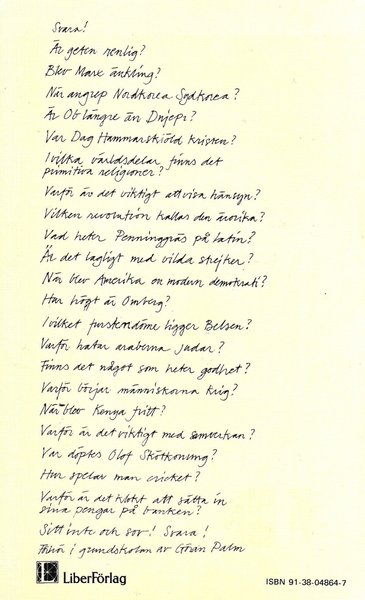 Svara!
Är geten renlig?
Blev Marx änkling?
När angrep Nordkorea Sydkorea?
Är Ob längre än Dnjepr?
Var Dag Hammarskiöld kristen?
I vilka världsdelar finns det
primitiva religioner?
Varför är det viktigt att visa hänsyn?
Vilken revolution kallas den ärorika?
Vad heter Penninggräs på latin?
Är det lagligt med vilda strejker?
När blev Amerika en modern demokrati?
Hur högt är Omberg?
I vilket furstendöme ligger Belsen?
Varför hatar araberna judar?
Finns det något som heter godhet?
Varför börjar människorna krig?
När blev Kenya fritt?
Varför är det viktigt med samverkan?
Var döptes Olof Skötkonung?
Hur spelar man cricket?
Varför är det klokt att sätta in
sina pengar på banken?
Sitt inte och sov! Svara!
i grundskolan av Göran Palm
LiberFörlag
ISBN 91-38-04864-7